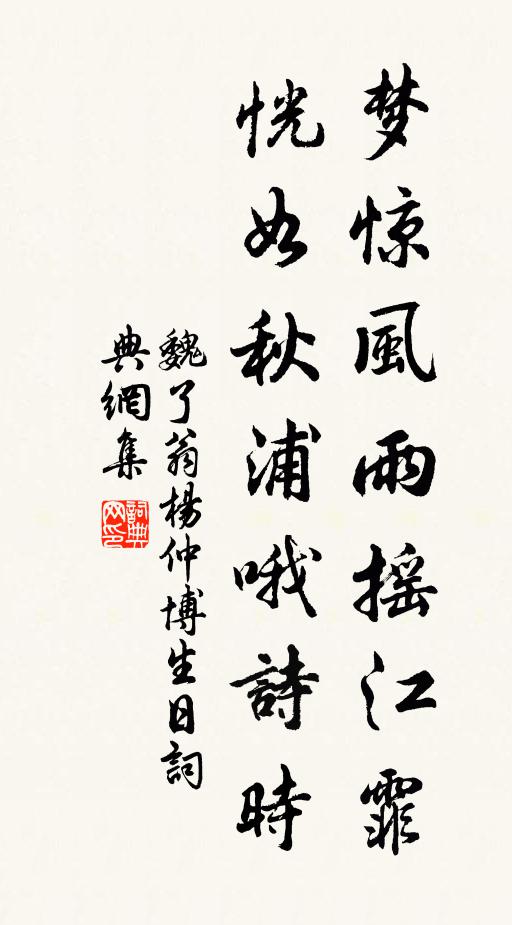 梦惊風雨摇江霏
恍如秋浦哦詩時
魏了翁楊仲博生日詞
典網集
詞典
网印